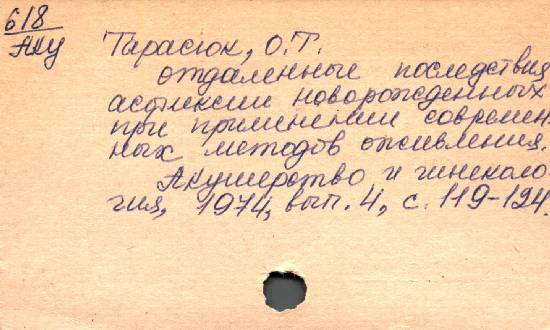 618
Аку
Тарасюк, О.Т.
Отдаленные последствия
асфиксии новорожденных
при применении современ-
ных методов оживления.
Акушерство и гинеколо-
гия, 1974, вып. 4, с. 119-124.